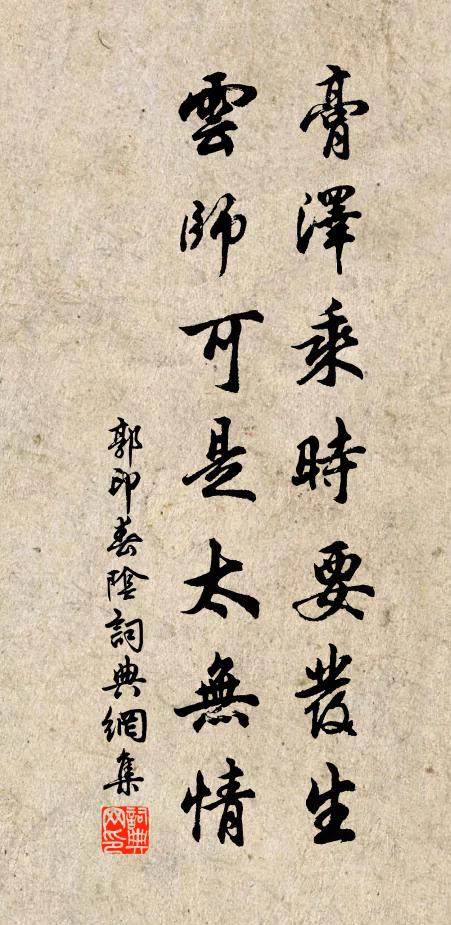 膏澤乘時要發生
雲師可是太無情
郭印春陰詞典網集
詞典网印